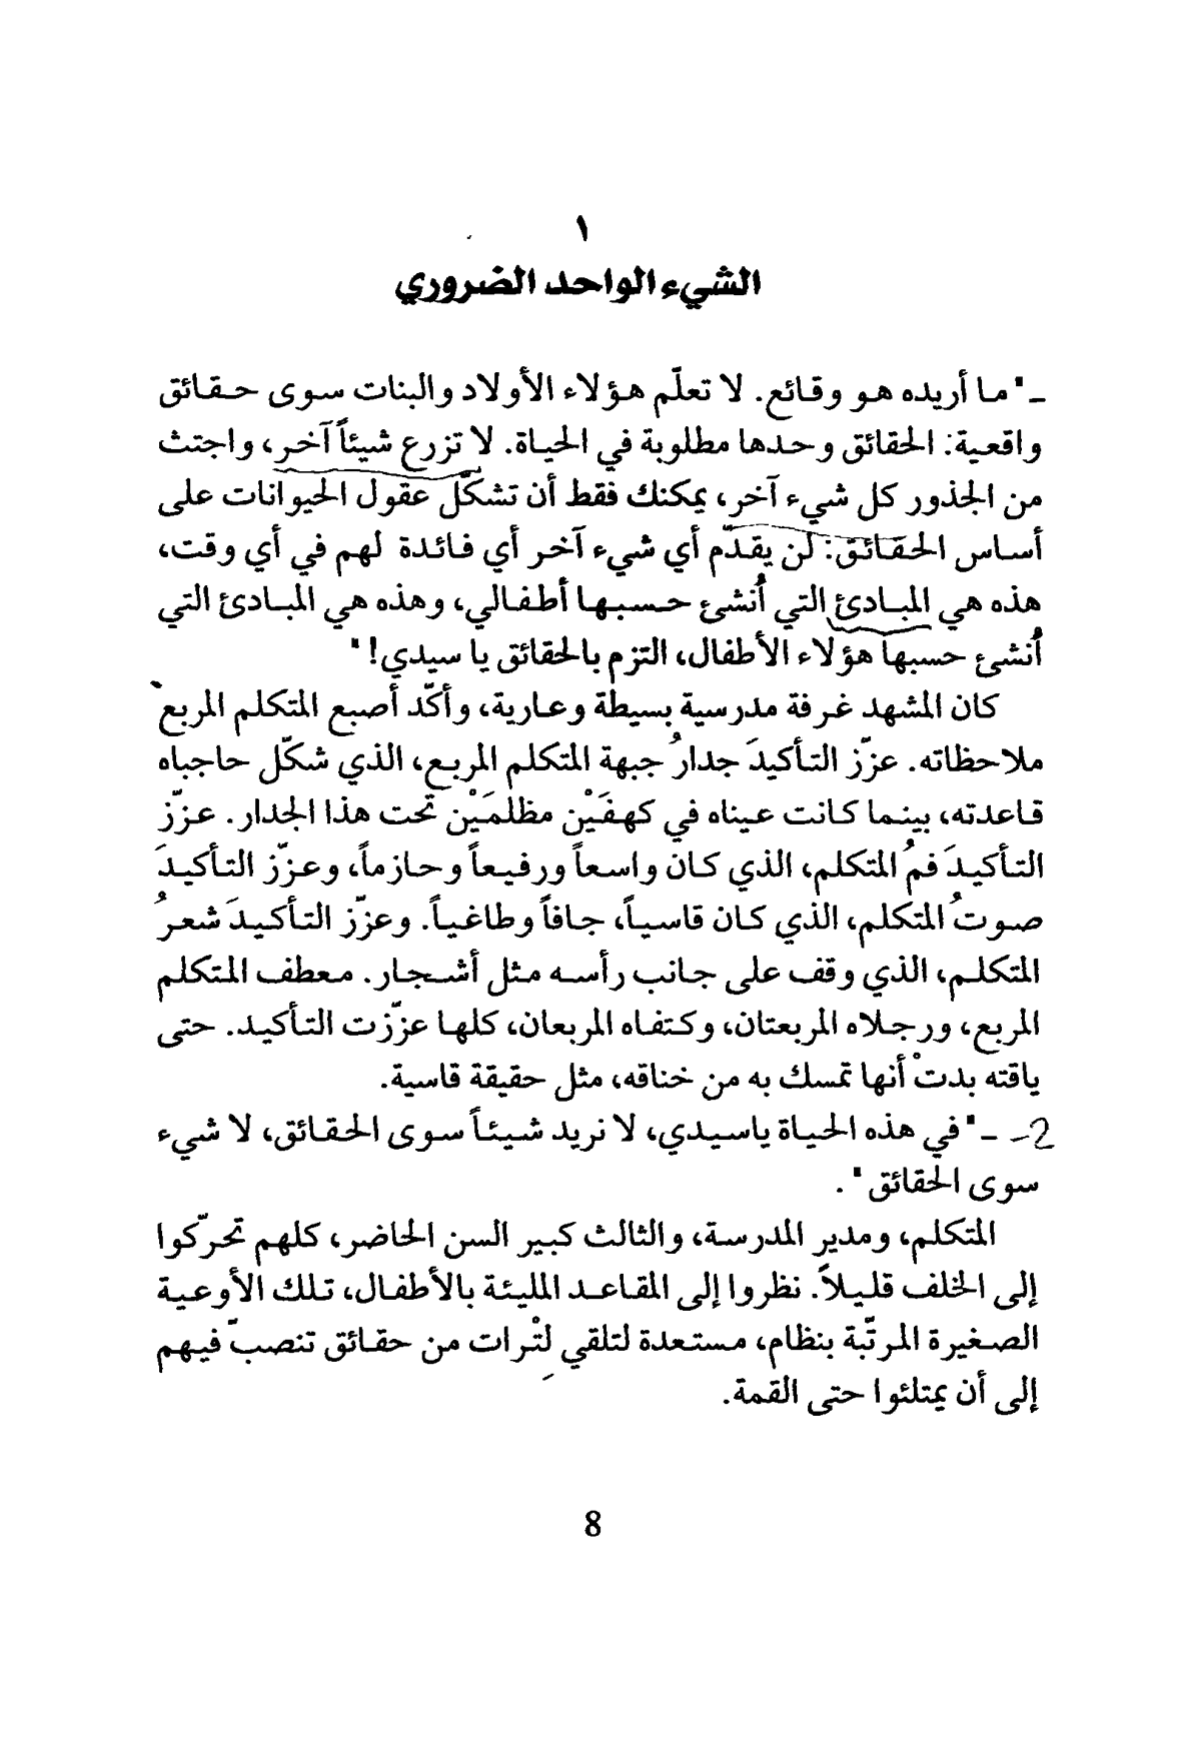 ١
الشيء الواحد الضروري
ـ "ما أريده هو وقائع. لا تعلّم هؤلاء الأولاد والبنات سوى حقائق
واقعية: الحقائق وحدها مطلوبة في الحياة. لا تزرع شيئاً آخر، واجتث
من الجذور كل شيء آخر، يمكنك فقط أن تشكّل عقول الحيوانات على
أساس الحقائق: لن يقدّم أي شيء آخر أي فائدة لهم في أي وقت،
هذه هي المبادئ التي أُنشئ حسبها أطفالي، وهذه هي المبادئ التي
أُنشئ حسبها هؤلاء الأطفال، التزم بالحقائق يا سيدي! "
كان المشهد غرفة مدرسية بسيطة وعارية، وأكّد أصبع المتكلم المربع
ملاحظاته. عزّز التأكيدَ جدارُ جبهة المتكلم المربع، الذي شكّل حاجباه
قاعدته، بينما كانت عيناه في كهفَيْن مظلمَيْن تحت هذا الجدار. عزّز
التأكيدَ فمُ المتكلم، الذي كان واسعاً ورفيعاً وحازماً، وعزّز التأكيدَ
صوتُ المتكلم، الذي كان قاسياً، جافاً وطاغياً. وعزّز التأكيدَ شعرُ
المتكلم، الذي وقف على جانب رأسه مثل أشجار. معطف المتكلم
المربع، ورجلاه المربعتان، وكتفاه المربعان، كلها عزّزت التأكيد. حتى
ياقته بدتْ أنها تمسك به من خناقه، مثل حقيقة قاسية.
2- ـ "في هذه الحياة ياسيدي، لا نريد شيئاً سوى الحقائق، لا شيء
سوى الحقائق " .
المتكلم، ومدير المدرسة، والثالث كبير السن الحاضر، كلهم تحرّكوا
إلى الخلف قليلاً. نظروا إلى المقاعد المليئة بالأطفال، تلك الأوعية
الصغيرة المرتّبة بنظام، مستعدة لتلقي لتْرات من حقائق تنصبّ فيهم
إلى أن يمتلئوا حتى القمة.
8